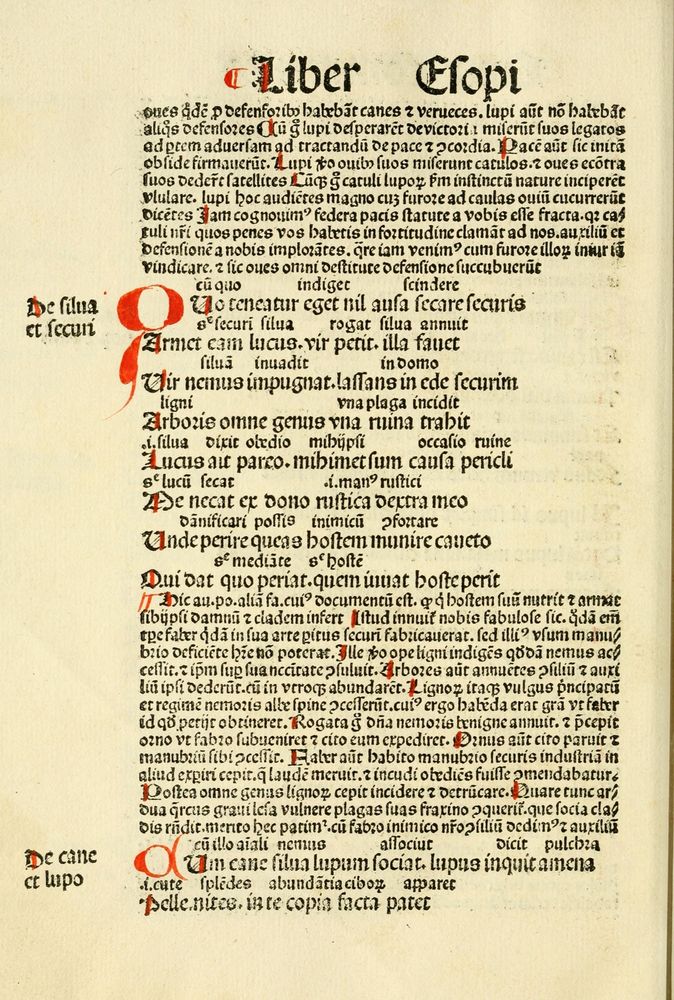 Liber Esopi
oues q̄dē ꝓ defensorib⁹ habebāt canes ⁊ verueces. lupi aūt nō habebāt
aliq̄s defensores Cū g̊ lupi desperarēt de victoria miserūt suos legatos
ad ꝑtem aduersam ad tractandū de pace ⁊ ꝯcordia. Pacē aūt sic initā
obside firmauerūt. Lupi ꝟo ouib⁹ suos miserunt catulos. ⁊ oues ecōtra
suos dederūt satellites Cūqꝫ g̊ catuli lupoꝝ ẜm instinctū nature inciperēt
vlulare. lupi hoc audiētes magno cuꝫ furore ad caulas ouiū cucurrerūt
dicētes Jam cognouim⁹ federa pacis statute a vobis esse fracta. qꝛ ca/
tuli nr̄i quos penes vos habetis in fortitudine clamāt ad nos. auxiliū et
defensionē a nobis implorātes. q̄re iam venim⁹ cum furore illoꝝ iniuriā
vindicare. ⁊ sic oues omni destitute defensione succubuerūt
cū quo indiget scindere
De silua
et securi
QUo teneatur eget nil ausa secare securis
sᵉ securi silua rogat silua annuit
Armet eam lucus. vir petit. illa fauet
siluā inuadit in domo
Uir nemus impugnat. lassans in ede securim
ligni vna plaga incidit
Arboris omne genus vna ruina trahit
.i. silua dixit obedio mihijpsi occasio ruine
Lucus ait pareo. mihimet sum causa pericli
sᵉ lucū secat .i. man⁹ rustici
Me necat ex dono rustica dextra meo
dānificari possis inimicū ꝯfortare
Unde perire queas hostem munire caueto
sᵉ mediāte sᵉ hostē
Qui dat quo periat. quem iuuat hoste perit
Hic au. po. aliā fa. cui⁹ documentū est. ꝙ q̇ hostem suū nutrit ⁊ armat
sibijpsi damnū ⁊ cladem infert Istud innuit nobis fabulose sic. q̇dā em̄
tꝑe faber q̇dā in sua arte ꝑitus securi fabricauerat. sed illi⁹ vsum manu/
brio deficiēte hr̄e nō poterat. Ille ꝟo ope ligni indigēs q̇ddā nemus ac/
cessit. ⁊ ip̄m suꝑ sua nccītate ꝯsuluit. Arbores aūt annuētes ꝯsiliū ⁊ auxi
liū ipsi dederūt. cū in vtroqꝫ abundarēt. Lignoꝝ itaqꝫ vulgus p̄ncipatū
et regimē nemoris albe spine ꝯcesserūt. cui⁹ ergo habēda erat gr̄a vt faber
id qd̓ petijt obtineret. Rogata g̊ dn̄a nemoris benigne annuit. ⁊ p̄cepit
orno vt fabro subueniret ⁊ cito eum expediret. Ornus aūt cito paruit ⁊
manubriū sibi ꝯcessit. Faber aūt habito manubrio securis industriā in
aliud exꝑiri cepit. q̄ laudē meruit. ⁊ incudi obediēs fuisse ꝯmendabatur.
Postea omne genus lignoꝝ cepit incidere ⁊ detrūcare. Quare tunc ar/
dua q̄rcus graui lesa vulnere plagas suas fraxino ꝯquerit̄. que socia cla/
dis rn̄dit. merito hec patim̄. cū fabro inimico nr̄o ꝯsiliū dedim⁹ ⁊ auxiliū
cū illo aīali nemus associut dicit pulchra
De cane
et lupo
CUm cane silua lupum sociat. lupus inquit amena
.i. cute splēdes abundātia ciboꝝ apparet
Pelle. nites. in te copia facta patet